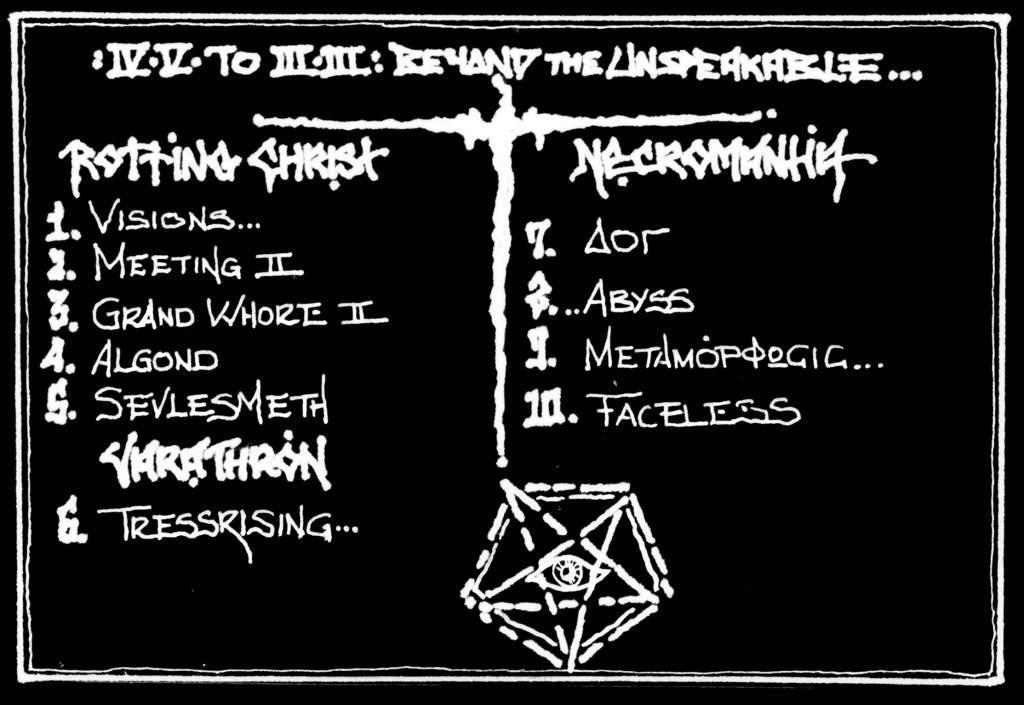 :IV·V· TO III·III: BEYAND THE UNSPEAKABLE...
ROTTING CHRIST
1. VISIONS...
2. MEETING II
3. GRAND WHORE II
4. ALGOND
5. SEVLESMETH
VARATHRON
6. TRESSRISING...
NECROMANTIA
7. ΔΟΓ
8...ABYSS
9. METAMÓPΦOGIG...
10. FACELESS